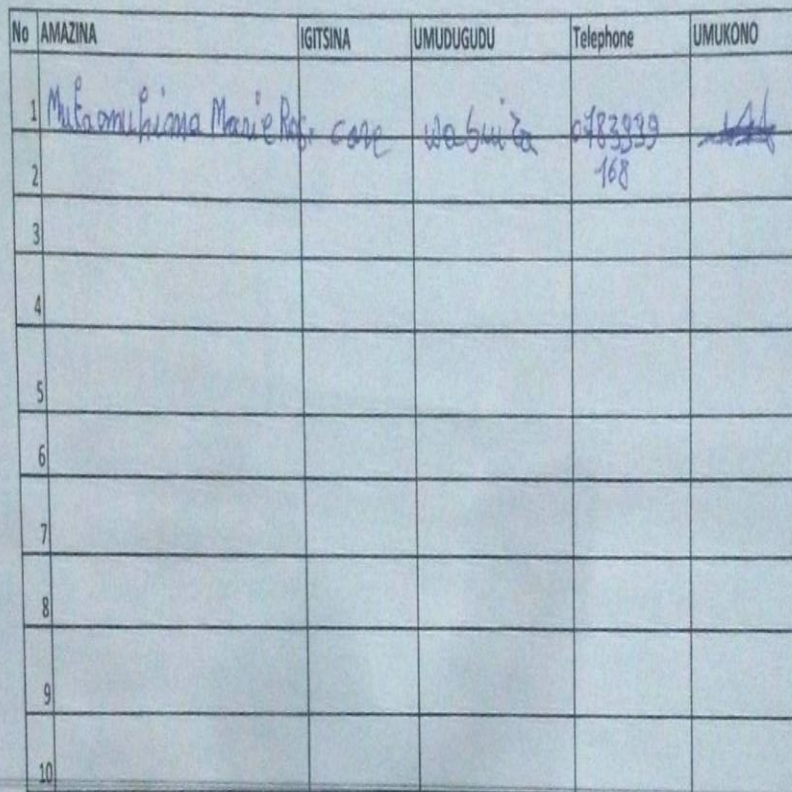 No AMAZINA IGITSINA UMUDUGUDU Telephone UMUKONO
1 Mukamuhiana Marie Ros. Gore 0783999
2 168
3
4
5
6
7
8
9
10